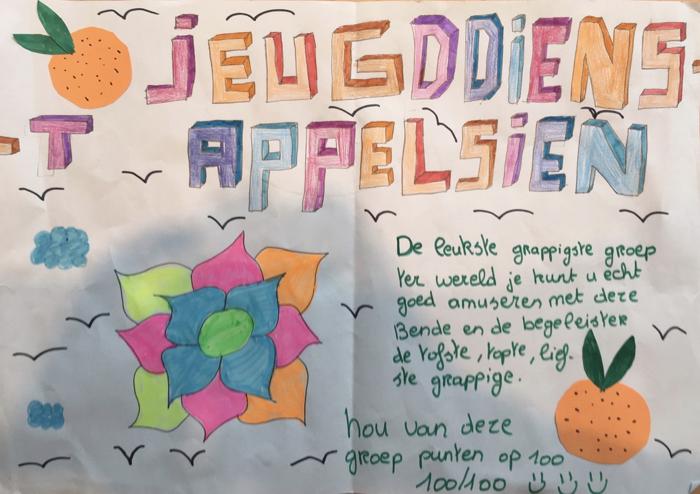 JEUGDDIENS-
-T APPELSIEN
De leukste grappigste groep
ter wereld je kunt u echt
goed amuseren met deze
Bende en de begeleister
de tofste, topte, lief-
ste grappige.
hou van deze
groep punten op 100
100/100